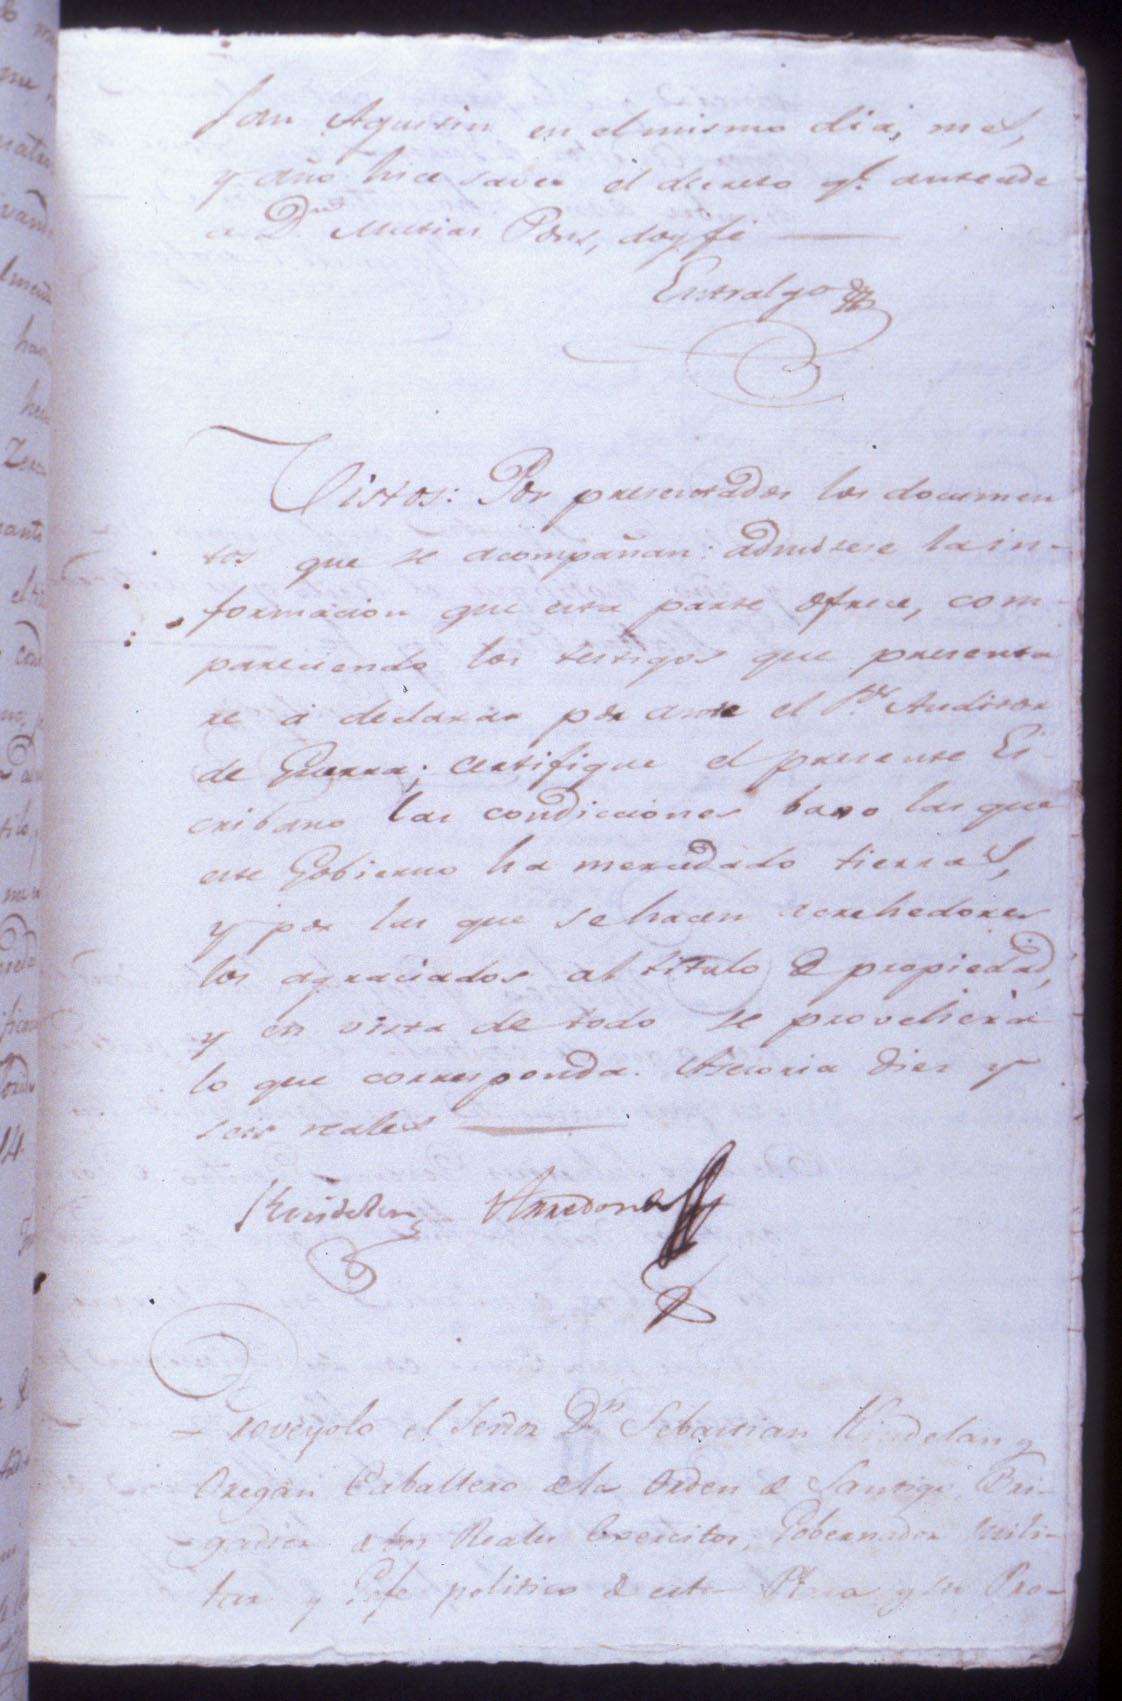 San Agustin en el mismo dia, mes,
y año hice saver el decreto qe. antecede
a Dn. Matias Pons, doy fe
Entralgo
Vistos: Por presentados los documen
tos que se acompañan: admitese la in-
formacion que esta parte ofrece, com-
pareciendo los testigos que presenta
re á declarar por ante el Sor. Auditor
de Guerra; certifique el presente Es-
cribano las condicciones baxo las que
este Gobierno ha mercedado tierras,
y por las que se hacen acrehedores
los agraciados al titulo de propiedad,
y en vista de todo se provehera
lo que corresponda. Asesoria diez y
seis reales
Kindelan Arredondo
Proveyolo el Señor Dn. Sebastian Kindelan y
Oregan Caballero de la Orden de Santiago, Bri-
gadier de los Reales Exercitos, Gobernador mili-
tar y Gefe politico de esta Plaza y su Pro-